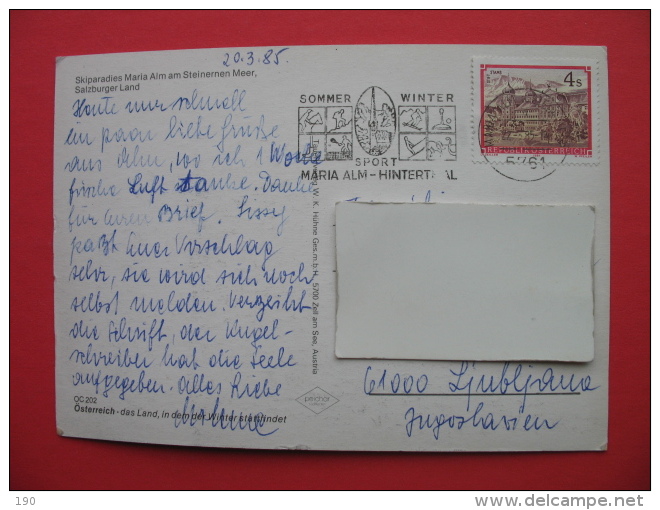 20.3.85.
Skiparadies Maria Alm am Steinernen Meer,
Salzburger Land
Heute nur schnell
ein paar liebe Grüße
aus Alm, wo ich 1 Woche
frische Luft tanke. Danke
für Euren Brief. Sissy
paßt Euer Vorschlag
sehr, sie wird sich noch
selbst melden. Verzeiht
die Schrift, der Kugel-
schreiber hat die Seele
aufgegeben. Alles Liebe
OC 202
Österreich - das Land, in dem der Winter stattfindet
W. K. Hühne Ges.m.b.H., 5700 Zell am See, Austria
SOMMER WINTER
SPORT
MARIA ALM - HINTERTAL
STAMS
4 S
REPUBLIK ÖSTERREICH
5761
61000 Ljubljana
Jugoslavien
190
delcampe.net